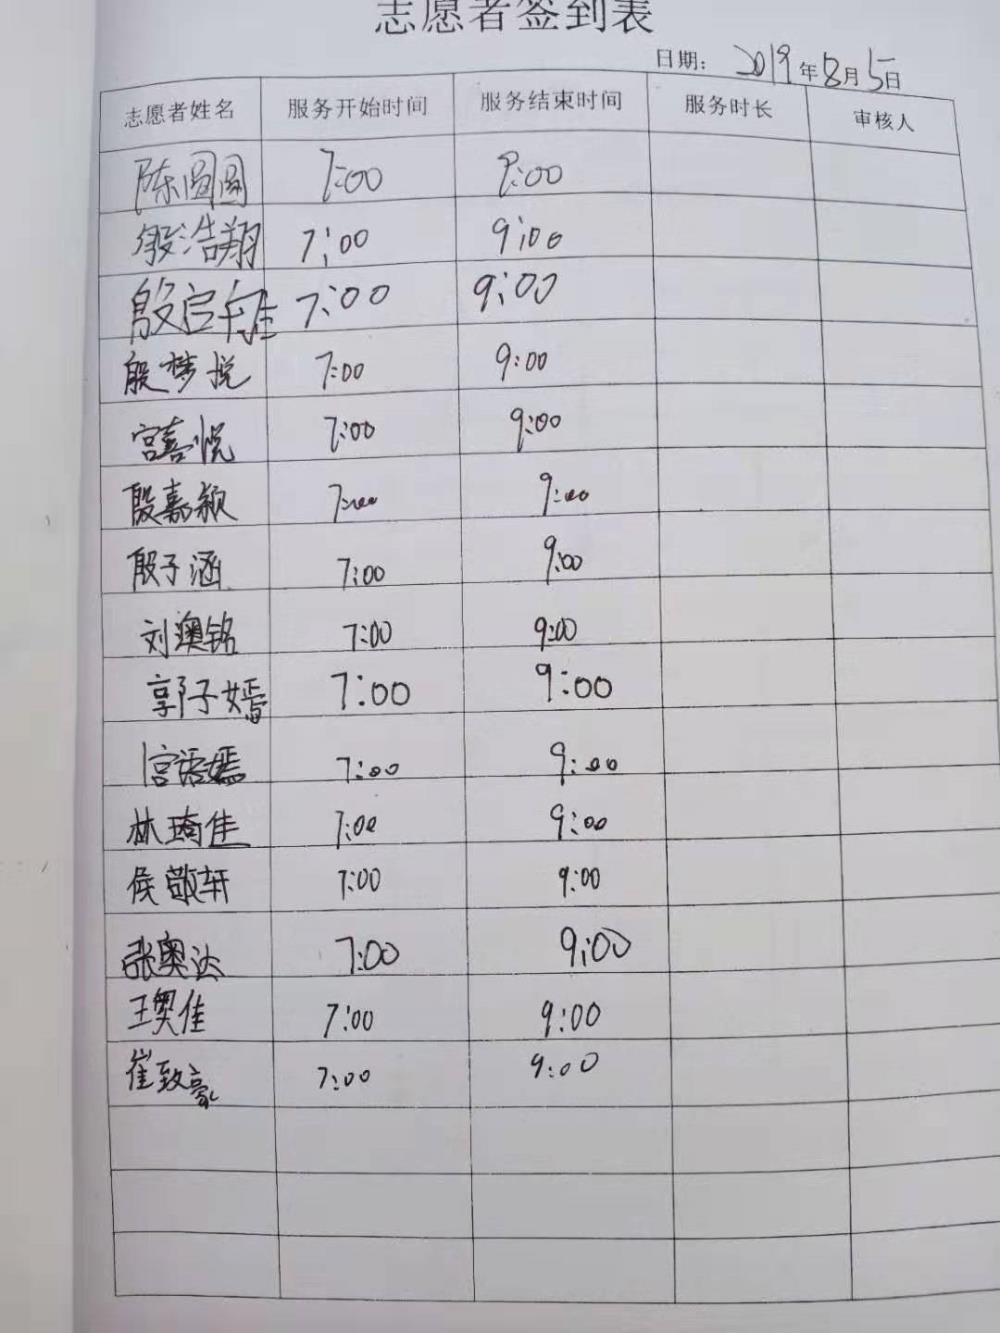 志愿者签到表
日期: 2019年8月5日
志愿者姓名 服务开始时间 服务结束时间 服务时长 审核人
陈圆圆 7:00 9:00
殷浩翔 7:00 9:00
殷启 7:00 9:00
殷梦悦 7:00 9:00
宫喜悦 7:00 9:00
殷嘉颖 7:00 9:00
殷子涵 7:00 9:00
刘澳铭 7:00 9:00
郭子嫣 7:00 9:00
宫语嫣 7:00 9:00
林琦佳 7:00 9:00
侯敬轩 7:00 9:00
张奥达 7:00 9:00
王奥佳 7:00 9:00
崔致豪 7:00 9:00